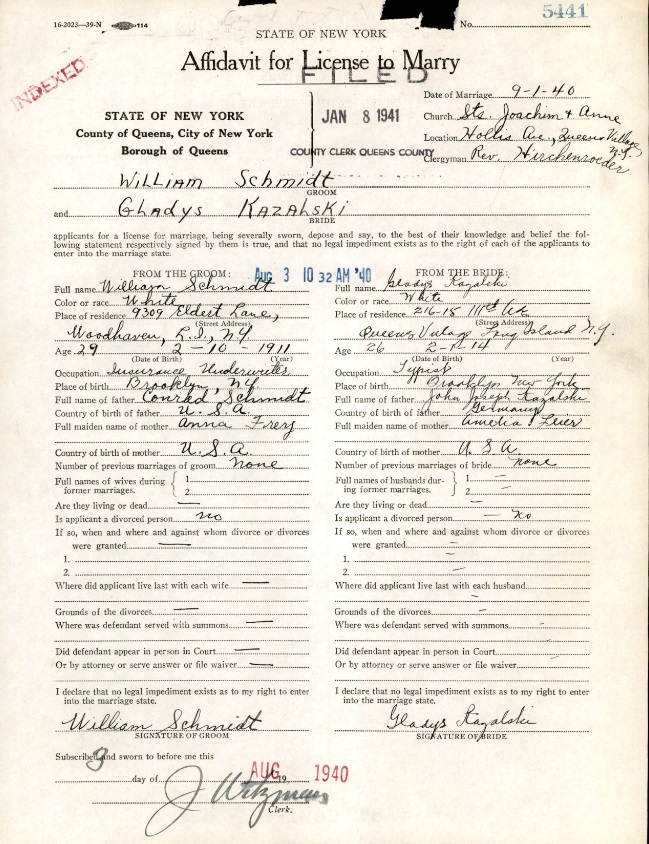 16-2023—39-N 114
No. 5441
STATE OF NEW YORK
Affidavit for License to Marry
INDEXED
FILED
Date of Marriage 9-1-40
STATE OF NEW YORK
County of Queens, City of New York
Borough of Queens
JAN 8 1941
COUNTY CLERK QUEENS COUNTY
Church Sts. Joachim & Anne
Location Hollis Ave., Queens Village N.Y.
Clergyman Rev. Hirchenroeder
William Schmidt
GROOM
and Gladys Kazalski
BRIDE
applicants for a license for marriage, being severally sworn, depose and say, to the best of their knowledge and belief the fol-
lowing statement respectively signed by them is true, and that no legal impediment exists as to the right of each of the applicants to
enter into the marriage state.
Aug 3 10 32 AM '40
FROM THE GROOM:
Full name William Schmidt
Color or race White
Place of residence 9309 Eldert Lane,
(Street Address)
Woodhaven, L.I., N.Y.
Age 29 2-10-1911
(Date of Birth) (Year)
Occupation Insurance Underwriter
Place of birth Brooklyn, N.Y.
Full name of father Conrad Schmidt
Country of birth of father U.S.A.
Full maiden name of mother Anna Frey
Country of birth of mother U.S.A.
Number of previous marriages of groom none
Full names of wives during
former marriages.
1
2
Are they living or dead? —
Is applicant a divorced person no
If so, when and where and against whom divorce or divorces
were granted —
1.
2.
Where did applicant live last with each wife —
Grounds of the divorces —
Where was defendant served with summons —
Did defendant appear in person in Court —
Or by attorney or serve answer or file waiver —
I declare that no legal impediment exists as to my right to enter
into the marriage state.
William Schmidt
SIGNATURE OF GROOM
FROM THE BRIDE:
Full name Gladys Kazalski
Color or race White
Place of residence 216-18 111th Ave
(Street Address)
Queens Village Long Island N.Y.
Age 26 14
(Date of Birth) (Year)
Occupation Typist
Place of birth Brooklyn New York
Full name of father John Joseph Kazalski
Country of birth of father Germany
Full maiden name of mother Amelia Leier
Country of birth of mother U.S.A.
Number of previous marriages of bride none
Full names of husbands dur-
ing former marriages.
1 —
2 —
Are they living or dead? —
Is applicant a divorced person — No
If so, when and where and against whom divorce or divorces
were granted —
1. —
2. —
Where did applicant live last with each husband
—
Grounds of the divorces —
Where was defendant served with summons —
Did defendant appear in person in Court —
Or by attorney or serve answer or file waiver —
I declare that no legal impediment exists as to my right to enter
into the marriage state.
Gladys Kazalski
SIGNATURE OF BRIDE
Subscribed and sworn to before me this
day of AUG 19 1940
Clerk.